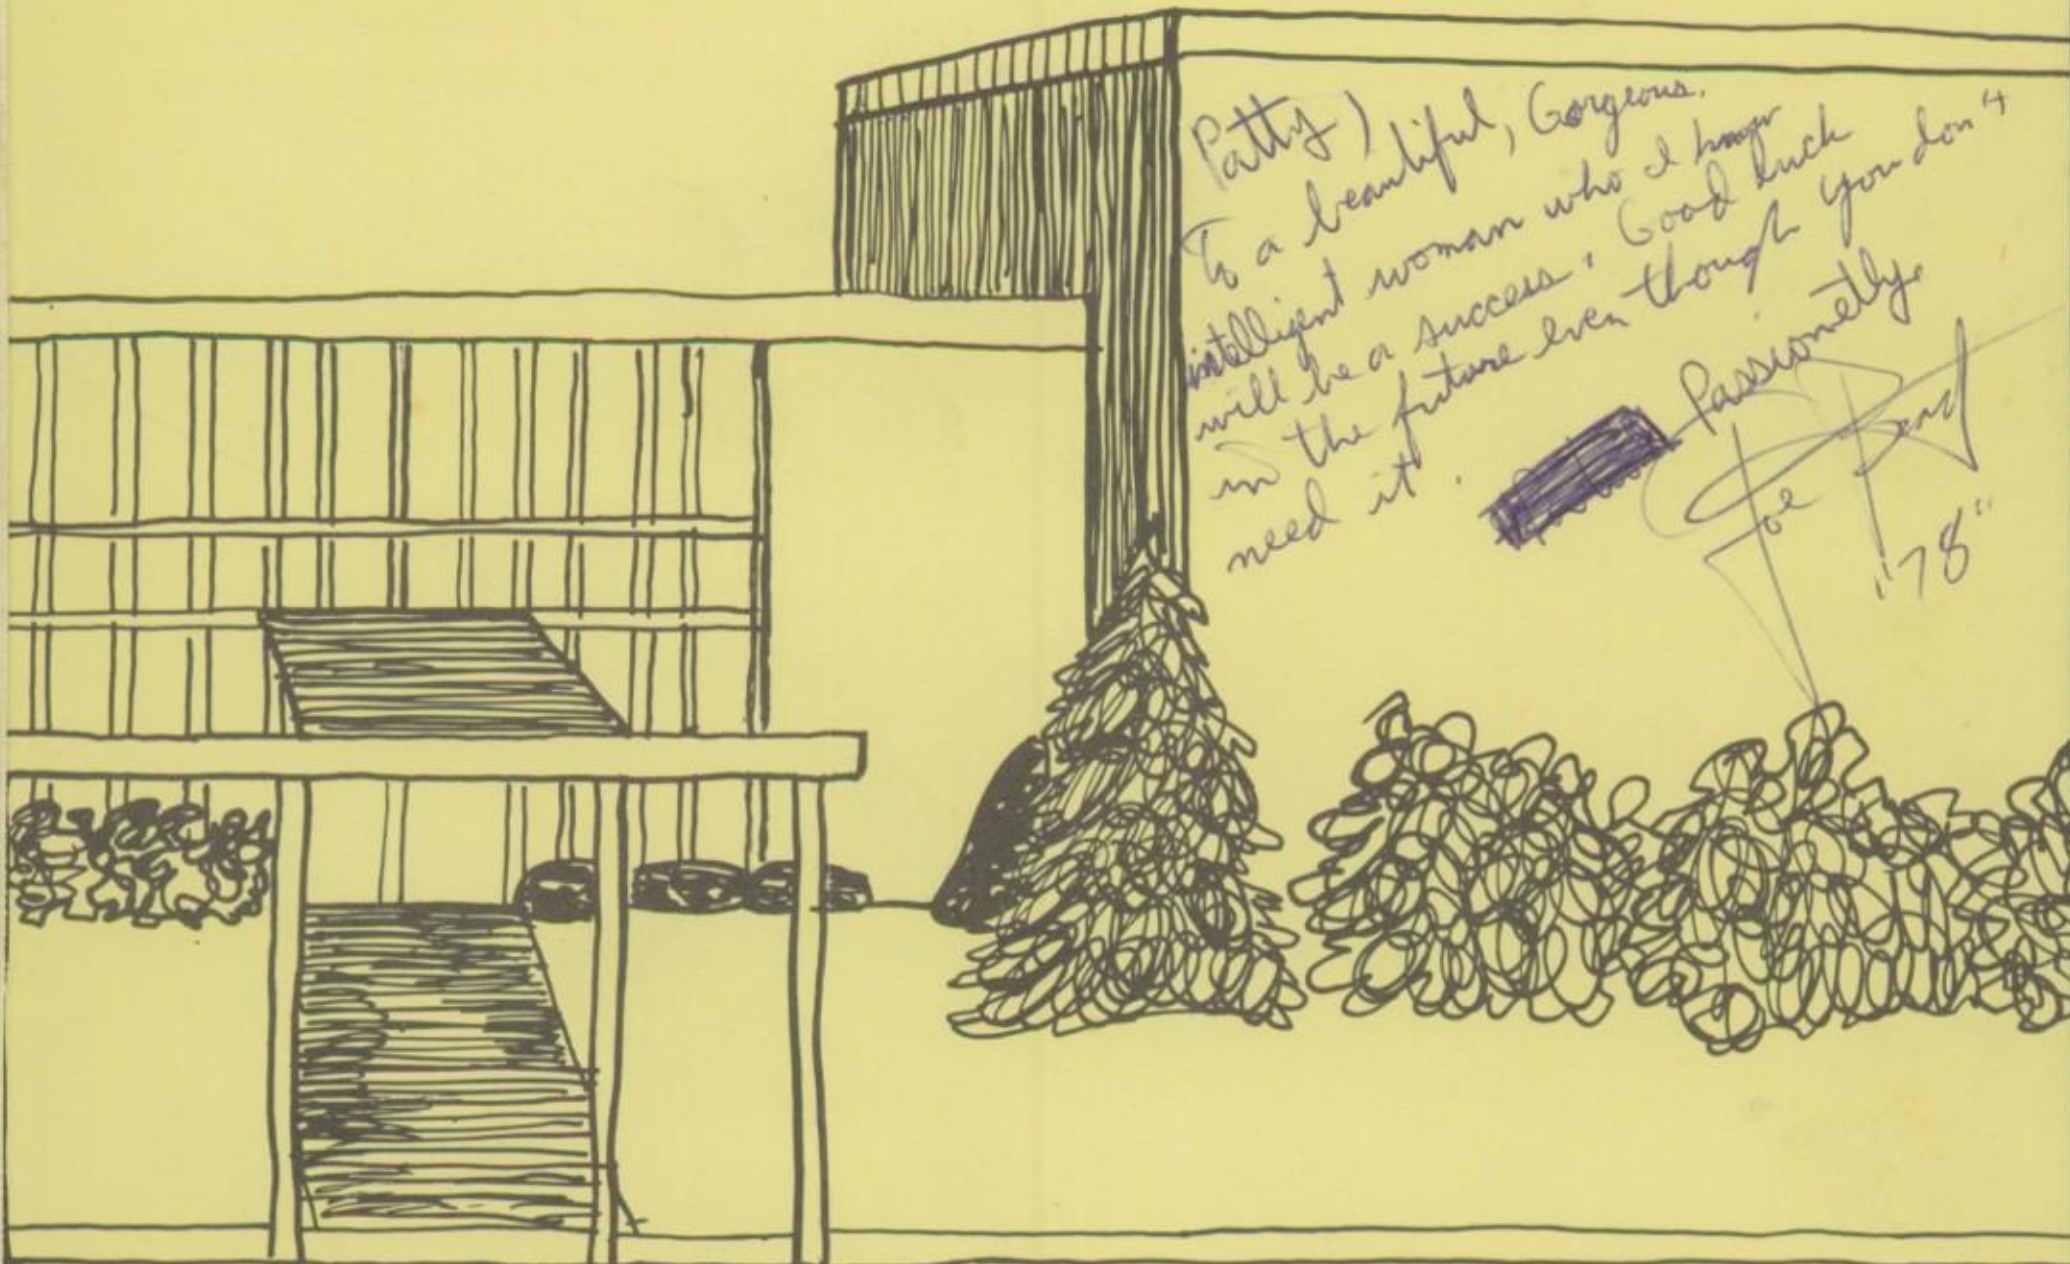 Patty)
To a beautiful, Gorgeous.
intelligent woman who I know
will be a success. Good Luck
in the future even though you don"t
need it.
Passionetly.
Joe
"78"